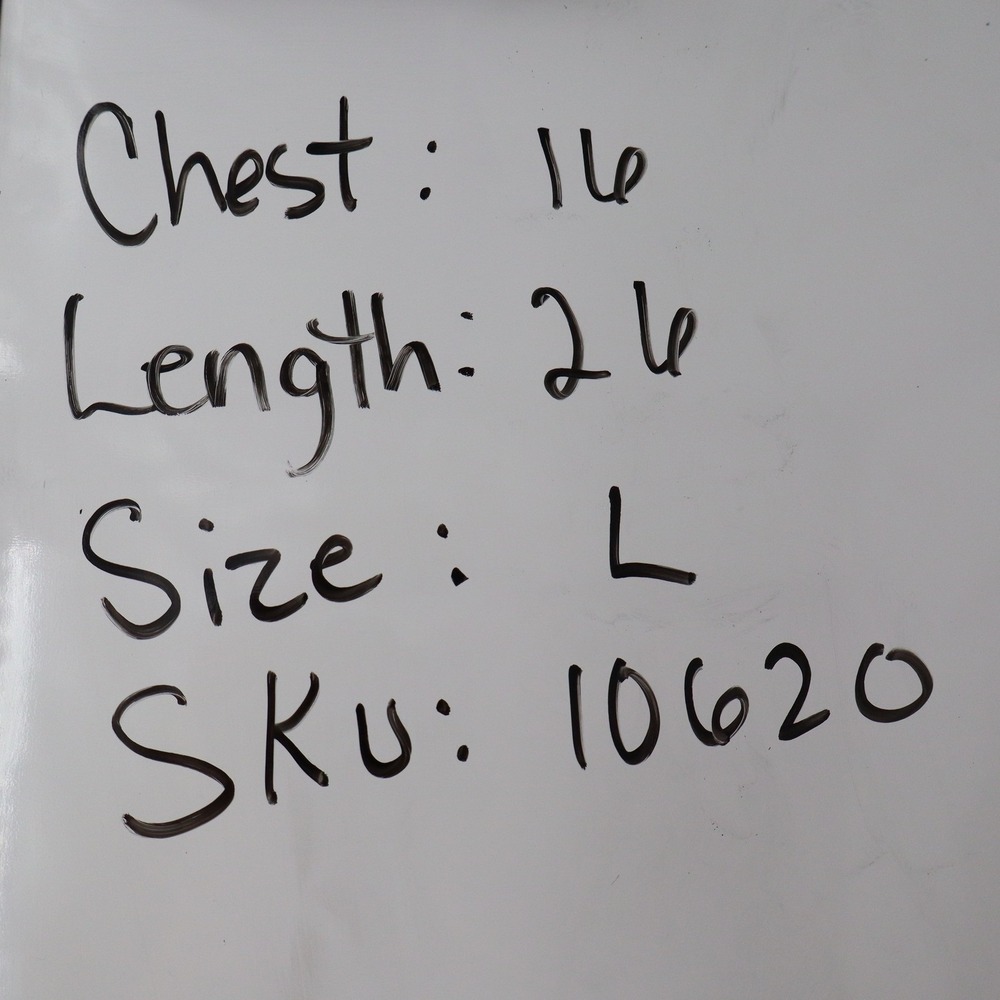 Chest: 16
Length: 26
Size: L
SKU: 10620